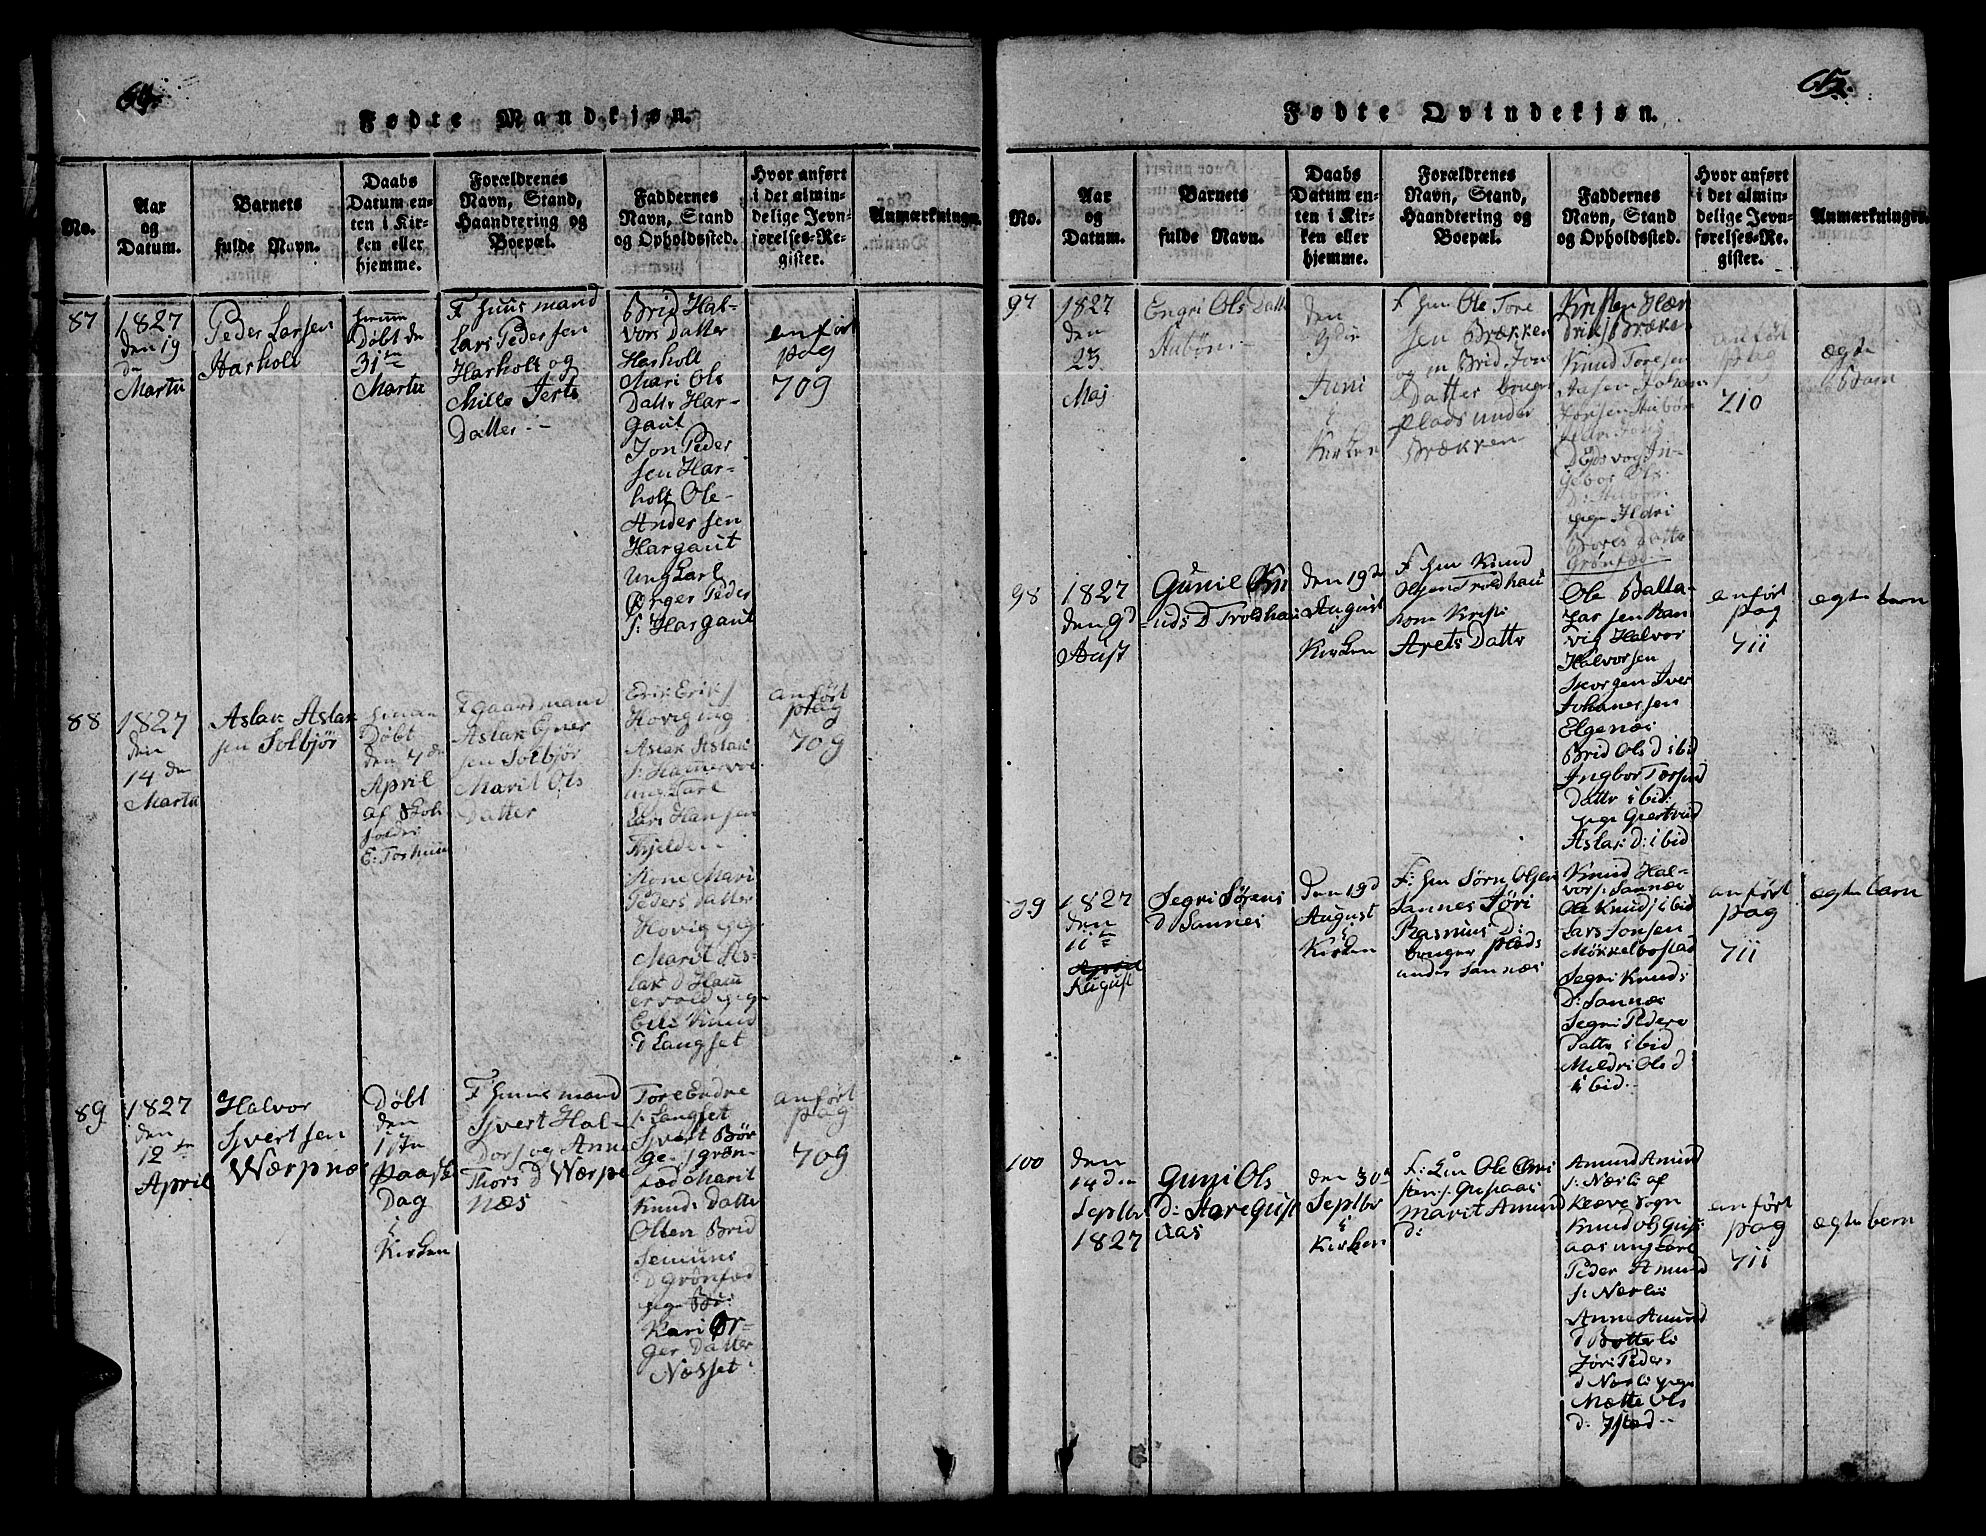 64.
Fødte Mandkjøn.
No.
Aar
og
Datum.
Barnets
fulde Navn.
Daabs
Datum en-
ten i Kir-
ken eller
hjemme.
Forældrenes
Navn, Stand,
Haandtering og
Boepæl.
Faddernes
Navn, Stand
og Opholdssted.
Hvor anført
i det almin-
delige Jevn-
førelses-Re-
gister.
Anmærkninger.
87
1827
den 19
de
Martii
Peder Larsen
Harholt
Døbt den
31te
Martii
F Huusmand
Lars Pedersen
Harholt og
Mille Jerts
Datter
Brid Hal-
vors Datter
Harholt
Mari Ols
Datter Har-
gaut
Jon Peder
sen Har-
holt Ole
Andersen
Hargaut
ung Karl
Ørger Peder
s: Hargaut
anført
pag
709
88
1827
den
14 de
Martii
Aslak Aslak
sen Solbjør
Døbt
den 4 de
April
af Skol
holder
E: Torhuu
F gaardmand
Aslak Einer
sen Solbjør
Marit Ols
Datter
Erik Erik s
Hovig ung
Aslak Aslak
s: Hammervol
ung Karl
Lars Hansen
Kjelde
Kone Mari
Peders Datter
Hovig pige
Marit As-
lak d Ham
ervold pige
Knud
d Langset
anført
pag
709
89
1827
den
12 te
April
Halvor
Sjvertsen
Wærpnæs
Døbt
den
1ste
Paaske
Dag
i
Kirken
F Huusmand
Sjvert Hal-
vors og Anne
Thors d Wærp
næs
Tore Endre
s: Langset
Sjvert Bør
ge s grøn-
fæd Marit
Knuds Datter
Olsen Brid
Semuns
D grønfæd
pige
Kari Ør-
ger Datter
Næsset
anført
pag
709
65.
Fødte Qvindekjøn.
No.
Aar
og
Datum.
Barnets
fulde Navn.
Daabs
Datum en-
ten i Kir-
ken eller
hjemme.
Forældrenes
Navn, Stand,
Haandtering og
Boepæl.
Faddernes
Navn, Stand
og Opholdssted.
Hvor anført
i det almin-
delige Jevn-
førelses-Re-
gister.
Anmærkninger.
97
1827
den
23
Maj
Engri Ols Datter
Stubøen
den
Juni
i
Kirken
F hm Ole Tore
sen Brækken
og m Brid Jon
Datter bruger
plads under
Brækken
Kristen Hæn
driks Bræke
Knud Toresen
Aasen Johan
Jonsen Stubøe
Eidsvog In-
gebor Ols
D: Stubøe
pige Ildri
Bores Datter
Grønfæd
anført
pag
710
ægte
Barn
98
1827
den 9d
Aust
Gunil Kn
uds D Troldhau
den 19 de
August
i
Kirken
F hm Knud
Olsen Troldhau
kone Kristi
Arets Datter
Ole Balta-
zar sen Ran
vig Halvor
Halvorsen
Skorgen Iver
Johanessen
Elgenæs
Brid Ols d ibid
Ingbor Torsend
Datter ibid:
pige Giertrud
Aslak D: ibid
anført
pag
711
ægte barn
99
1827
den
11te
April
August
Segri Sørens
D Sannes
den 19 d
August
i
Kirken
F: hm Sørn Olsen
Sannes Jøri
Rasmus D:
bruger plads
under Sannæs
Knud Hal-
vor s: Sannæs
Ole Knuds ibid
Lars Jonsen
Møkkelbostad
Segri Knuds
D: Sannæs
Segri Peders
Datter ibid
Mildri Ols d
ibid
anført
pag
711
ægte barn
100
den
14 de
Septbr
1827
Guni Ols
d: Store Gust
aas
den 30 te
Septbr
i
Kirken
F: hm Ole Chri
sten s: Gustaas
Marit Amund
D:
Amund Amund
s: Nærli af
Kleve Sogn
Knud Ols Gust
aas ung Karl
Peder Amund
s: Nærli
Anne Amund
d Botterli
Jøri Peder
d Nærli pige
Mætte Ols
D: Ystad
anført
pag
711
ægte barn